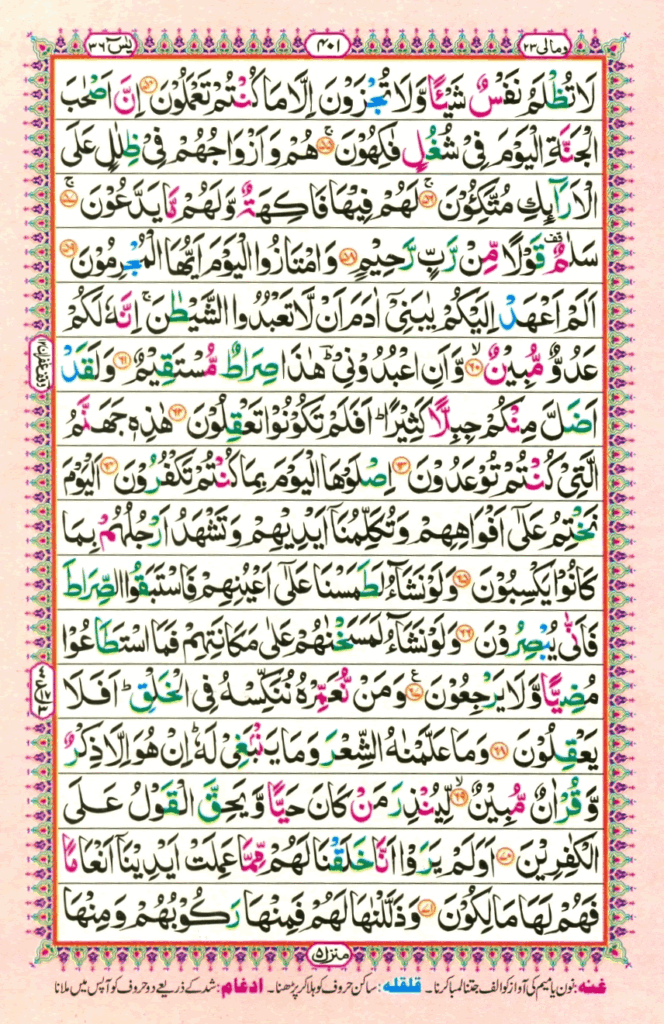 یٰسٓ ۳۶
۴۰۱
ومالی ۲۳
لَا تُظْلَمُ نَفْسٌ شَيْئًا وَّلَا تُجْزَوْنَ اِلَّا مَا كُنْتُمْ تَعْمَلُوْنَ ۝۵۴ اِنَّ اَصْحٰبَ
الْجَنَّةِ الْيَوْمَ فِيْ شُغُلٍ فٰكِهُوْنَ ۝۵۵ۚ هُمْ وَاَزْوَاجُهُمْ فِيْ ظِلٰلٍ عَلَى
الْاَرَآىِٕكِ مُتَّكِـُٔوْنَ ۝۵۶ۚ لَهُمْ فِيْهَا فَاكِهَةٌ وَّلَهُمْ مَّا يَدَّعُوْنَ ۝۵۷ۚ
سَلٰمٌ ۣ قَوْلًا مِّنْ رَّبٍّ رَّحِيْمٍ ۝۵۸ وَامْتَازُوا الْيَوْمَ اَيُّهَا الْمُجْرِمُوْنَ ۝۵۹
اَلَمْ اَعْهَدْ اِلَيْكُمْ يٰبَنِيْٓ اٰدَمَ اَنْ لَّا تَعْبُدُوا الشَّيْطٰنَ ۚ اِنَّهٗ لَكُمْ
عَدُوٌّ مُّبِيْنٌ ۝۶۰ۙ وَّاَنِ اعْبُدُوْنِيْ ؔؕ هٰذَا صِرَاطٌ مُّسْتَقِيْمٌ ۝۶۱ وَلَقَدْ
اَضَلَّ مِنْكُمْ جِبِلًّا كَثِيْرًا ؕ اَفَلَمْ تَكُوْنُوْا تَعْقِلُوْنَ ۝۶۲ هٰذِهٖ جَهَنَّمُ
الَّتِيْ كُنْتُمْ تُوْعَدُوْنَ ۝۶۳ اِصْلَوْهَا الْيَوْمَ بِمَا كُنْتُمْ تَكْفُرُوْنَ ۝۶۴ اَلْيَوْمَ
نَخْتِمُ عَلٰٓى اَفْوَاهِهِمْ وَتُكَلِّمُنَآ اَيْدِيْهِمْ وَتَشْهَدُ اَرْجُلُهُمْ بِمَا
كَانُوْا يَكْسِبُوْنَ ۝۶۵ وَلَوْ نَشَآءُ لَطَمَسْنَا عَلٰٓى اَعْيُنِهِمْ فَاسْتَبَقُوا الصِّرَاطَ
فَاَنّٰى يُبْصِرُوْنَ ۝۶۶ وَلَوْ نَشَآءُ لَمَسَخْنٰهُمْ عَلٰى مَكَانَتِهِمْ فَمَا اسْتَطَاعُوْا
مُضِيًّا وَّلَا يَرْجِعُوْنَ ۝۶۷ وَمَنْ نُّعَمِّرْهُ نُنَكِّسْهُ فِي الْخَلْقِ ؕ اَفَلَا
يَعْقِلُوْنَ ۝۶۸ وَمَا عَلَّمْنٰهُ الشِّعْرَ وَمَا يَنْۢبَغِيْ لَهٗ ؕ اِنْ هُوَ اِلَّا ذِكْرٌ
وَّقُرْاٰنٌ مُّبِيْنٌ ۝۶۹ۙ لِّيُنْذِرَ مَنْ كَانَ حَيًّا وَّيَحِقَّ الْقَوْلُ عَلَى
الْكٰفِرِيْنَ ۝۷۰ اَوَلَمْ يَرَوْا اَنَّا خَلَقْنَا لَهُمْ مِّمَّا عَمِلَتْ اَيْدِيْنَآ اَنْعَامًا
فَهُمْ لَهَا مَالِكُوْنَ ۝۷۱ وَذَلَّلْنٰهَا لَهُمْ فَمِنْهَا رَكُوْبُهُمْ وَمِنْهَا
منزل ۵
غنه: نون یا میم کی آواز کو الف جتنا لمبا کرنا۔ قلقله: ساکن حروف کو ہلا کر پڑھنا۔ ادغام: شد کے ذریعے دو حروف کو آپس میں ملانا